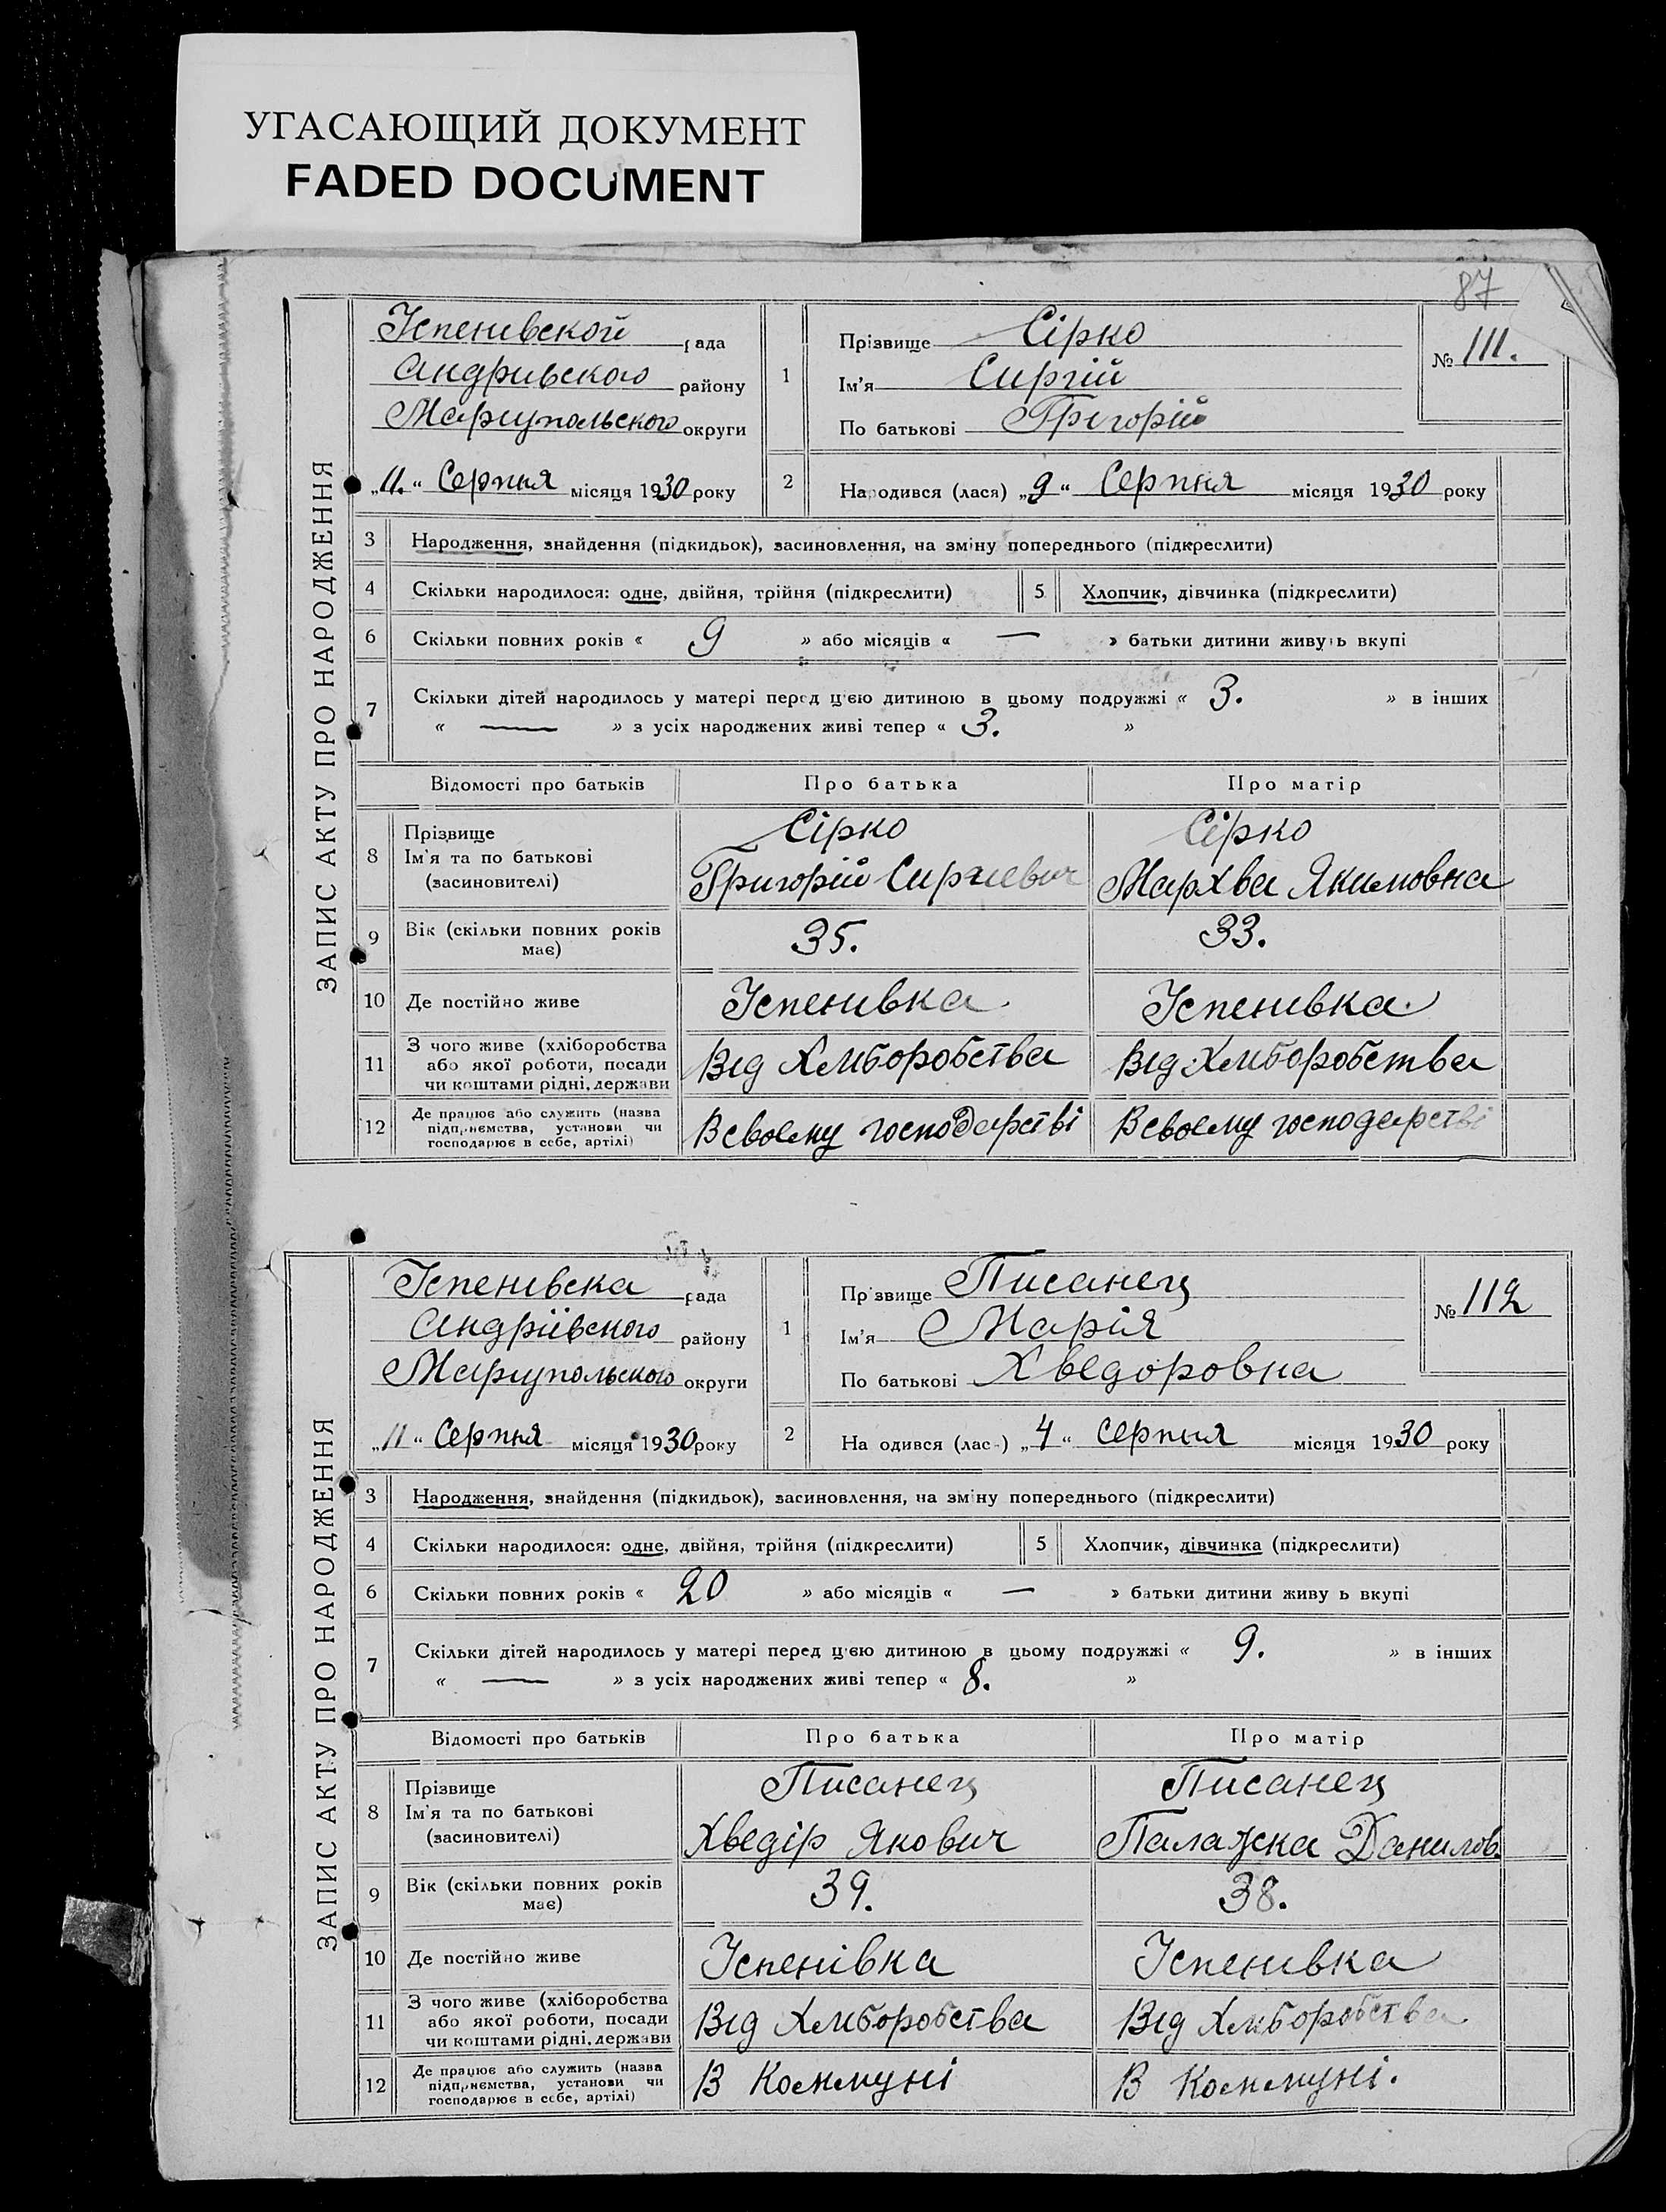 УГАСАЮЩИЙ ДОКУМЕНТ
FADED DOCUMENT
87
ЗАПИС АКТУ ПРО НАРОДЖЕННЯ
Успенивской рада
Андривского району
Мариупольского округи
„11.“ Серпня місяця 1930 року
1
Прізвище Сірко
Ім'я Сиргій
По батькові Григорій
№ 111.
2
Народився (лася) „9“ Серпня місяця 1930 року
3 Народження, знайдення (підкидьок), засиновлення, на зміну попереднього (підкреслити)
4 Скільки народилося: одне, двійня, трійня (підкреслити) 5 Хлопчик, дівчинка (підкреслити)
6 Скільки повних років « 9 » або місяців « — » батьки дитини живуть вкупі
7 Скільки дітей народилось у матері перед цією дитиною в цьому подружжі « 3. » в інших
« — » з усіх народжених живі тепер « 3. »
Відомості про батьків Про батька Про матір
8 Прізвище
Ім'я та по батькові
(засиновителі)
Сірко
Григорій Сиргиевич
Сірко
Мархва Якимовна
9 Вік (скільки повних років
має)
35.
33.
10 Де постійно живе Успенивка Успенивка.
11 З чого живе (хліборобства
або якої роботи, посади
чи коштами рідні, держави
Від Хлиборобства
Від Хлиборобства
12 Де працює або служить (назва
підприємства, установи чи
господарює в себе, артілі)
В своему господарстві
В своему господарстві
ЗАПИС АКТУ ПРО НАРОДЖЕННЯ
Успенівска рада
Андріївского району
Мариупольского округи
„11“ Серпня місяця 1930 року
1
Прізвище Писанец
Ім'я Марія
По батькові Хведоровна
№ 112
2
На одився (лас ) „4“ Серпня місяця 1930 року
3 Народження, знайдення (підкидьок), засиновлення, на зміну попереднього (підкреслити)
4 Скільки народилося: одне, двійня, трійня (підкреслити) 5 Хлопчик, дівчинка (підкреслити)
6 Скільки повних років « 20 » або місяців « — » батьки дитини живу ь вкупі
7 Скільки дітей народилось у матері перед цією дитиною в цьому подружжі « 9. » в інших
« — » з усіх народжених живі тепер « 8. »
Відомості про батьків Про батька Про матір
8 Прізвище
Ім'я та по батькові
(засиновителі)
Писанец
Хведір Якович
Писанец
Палажка Данилов.
9 Вік (скільки повних років
має)
39.
38.
10 Де постійно живе Успенівка Успенивка
11 З чого живе (хліборобства
або якої роботи, посади
чи коштами рідні, держави
Від Хлиборобства
Від Хлиборобства
12 Де працює або служить (назва
підприємства, установи чи
господарює в себе, артілі)
В Коммуні
В Коммуні.